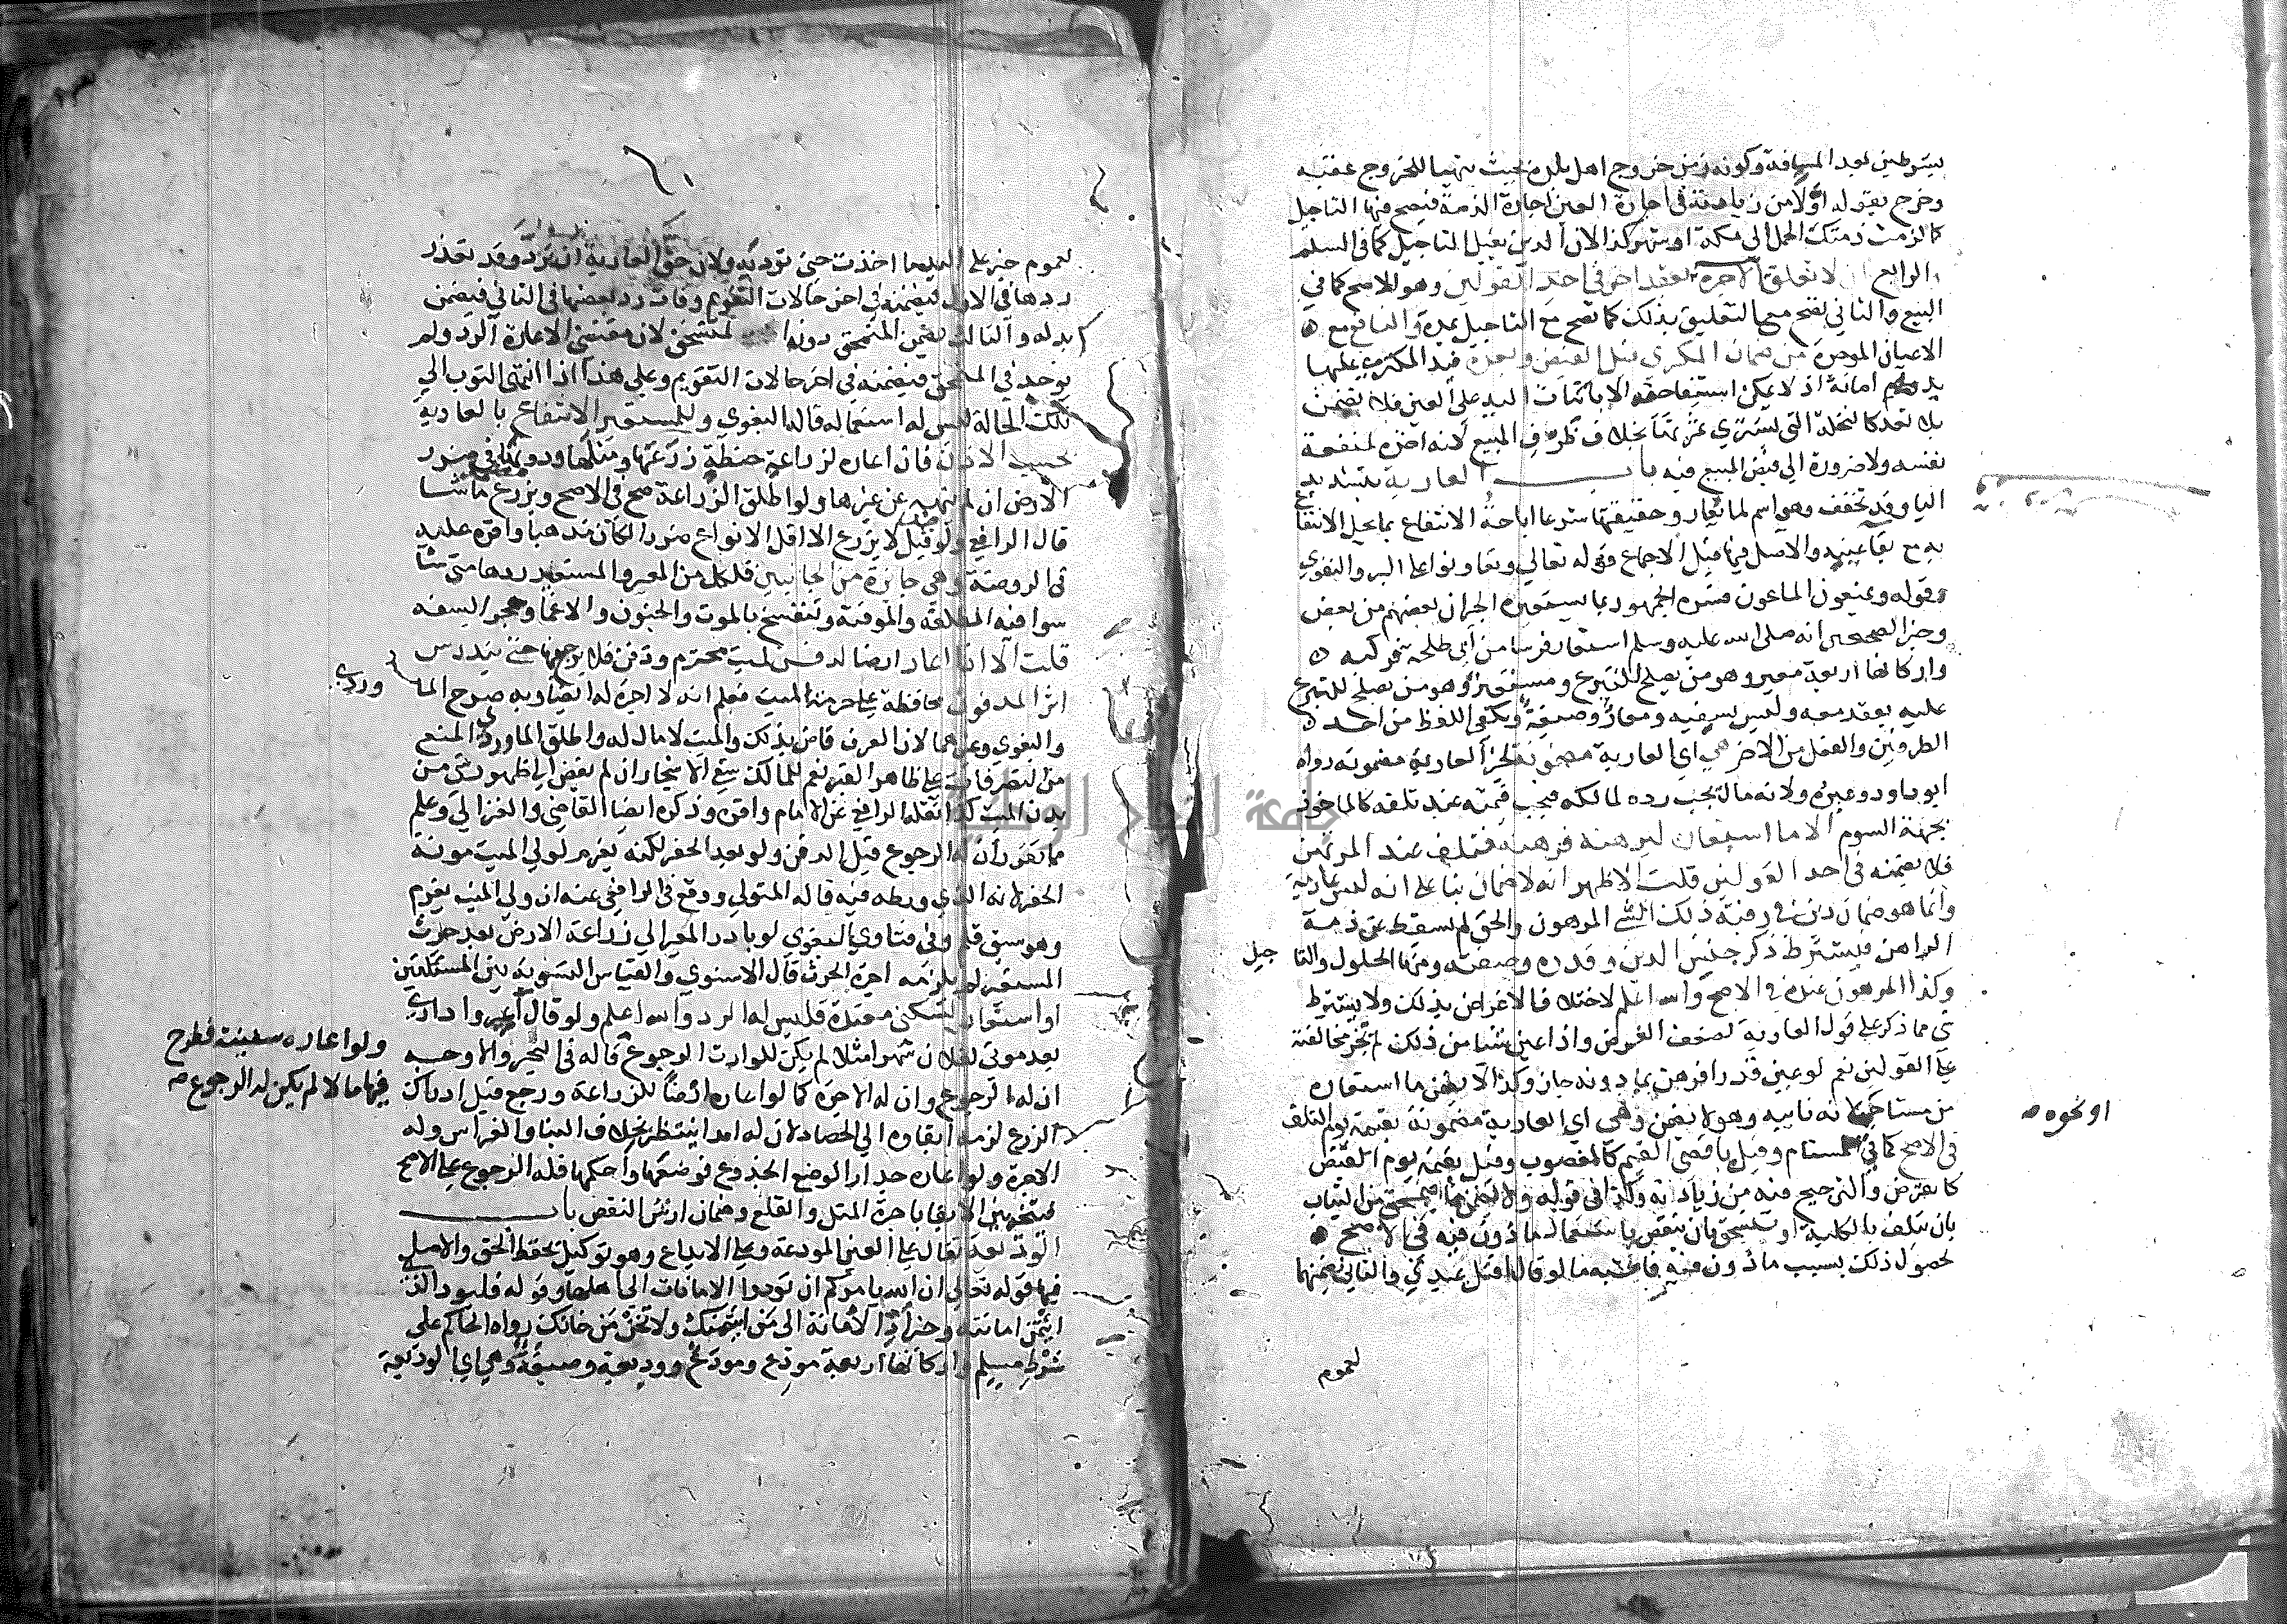 بشرطين بعد المسافة وكونه زمن خروج اهل بلده بحيث يتهيا للخروج عقبه
وخرج بقوله اولا من زيادته في اجارة العين اجارة الذمة فيصح فيها التاجيل
كالزمت ذمتك الحمل الي مكة اول شهر كذا لان الدين يقبل التاجيل كما في السلم
الرابع ان لا تعلق الاجرة بعقد اخر في احد القولين وهو الاصح كما في
البيع والثاني تصح مع التعليق بذلك كما تصح مع التاجيل بمدة
الاعيان الموجرة من ضمان المكري قبل القبض وبعده فيد المكتري عليها
يد امانة اذ لا يمكن استيفا حقه الا باثبات اليد علي العين فلا تضمن
بلا تعد كالنخلة التي تشتري ثمرتها بخلاف ظرف المبيع لانه اخذه لمنفعة
نفسه ولا ضرورة الي قبض المبيع فيه باب العارية بتشديد
اليا وقد تخفف وهي اسم لما يعار وحقيقتها شرعا اباحة الانتفاع بما يحل الانتفاع
به مع بقا عينه والاصل فيها قبل الاجماع قوله تعالي وتعاونوا علي البر والتقوي
وقوله ويمنعون الماعون فسره الجمهور بما يستعيره الجيران بعضهم من بعض
وخبر الصحيحين انه صلى الله عليه وسلم استعار فرسا من ابي طلحة فركبه
واركانها اربعة معير وهو من يصلح للتبرع ومستعير وهو من يصلح للتبرع
عليه بعقد معه وليس بسفيه ومعار وصيغة ويكفي اللفظ من احد
الطرفين والفعل من الاخر هي اي العارية مضمونة لخبر العارية مضمونة رواه
ابو داود وغيره ولانه مال يجب رده لمالكه فيجب قيمته عند تلفه كالماخوذ
بجهة السوم الا ما استعار ليرهنه فرهنه فتلف عند المرتهن
فلا يضمنه في احد القولين قلت الاظهر انه لا ضمان بنا علي انه ليس عارية
وانما هو ضمان دين في رقبة ذلك الشي المرهون والحق لم يسقط عن ذمة
الراهن فيشترط ذكر جنس الدين وقدره وصفته ومنها الحلول والتا جيل
وكذا المرهون عنده في الاصح والله اعلم لاختلاف الاغراض بذلك ولا يشترط
شي مما ذكر علي قول العارية لضعف الغرض واذا عين شيا من ذلك لم تجز مخالفته
علي القولين نعم لو عين قدرا فرهن بما دونه جاز وكذا لا يضمن ما استعاره
من مستاجر لانه نايبه وهو لا يضمن وهي اي العارية مضمونة بقيمة يوم التلف
او نحوه صح
في الاصح كما في المستام وقيل باقصي القيم كالمغصوب وقيل بقيمة يوم القبض
كالقرض والترجيح فيه من زيادته وكذا في قوله ولا يضمن ما ينمحق من الثياب
بان يتلف بالكلية او ينسحق بان ينقص باستعمال ماذون فيه في الاصح
لحصول ذلك بسبب ماذون فيه فاشبه ما لو قال اقتل عبدي والثاني يضمنهما
لعموم
لعموم خبر علي اليد ما اخذت حتي توديه ولان حق العارية ان ترد وقد تعذر
ردها في الاول فيضمنه في اخر حالات التقويم وفات رد بعضها في الثاني فيضمن
بدله والثالث يضمن المنمحق دون المنسحق لان مقتضي الاعارة الرد ولم
يوجد في المنمحق فيضمنه في اخر حالات التقويم وعلي هذا اذا انتهي الثوب الي
تلك الحالة ليس له استعماله قاله البغوي وللمستعير الانتفاع بالعارية
بحسب الاذن فان اعاره لزراعة حنطة زرعها ومثلها ودونها في ضرر
الارض ان لم ينهه عن غيرها ولو اطلق الزراعة صح في الاصح ويزرع ما شا
قال الرافعي ولو قيل لا يزرع الا اقل الانواع ضررا لكان مذهبا واقره عليه
في الروضة وهي جايزة من الجانبين فلكل من المعير والمستعير ردها متي شا
سوا فيه المطلقة والموقتة وتنفسخ بالموت والجنون والاغما وحجر السفه
قلت الا اذا اعار ارضا لدفن لميت محترم ودفن فلا يرجع فيها حتي يندرس
اثر المدفون محافظة علي حرمة الميت فعلم انه لا اجرة له ايضا وبه صرح الما
وردي
والبغوي وغيرهما لان العرف قاض بذلك والميت لا مال له واطلق الماوردي المنع
من التصرفات علي ظاهر القبر نعم للمالك سقي الاشجار ان لم يفض الي ظهور شي من
بدن الميت كذا نقله الرافعي عن الامام واقره وذكره ايضا القاضي والغزالي وعلم
مما تقرر ان له الرجوع قبل الدفن ولو بعد الحفر لكنه يغرم لولي الميت مونة
الحفر لانه الذي ورطه فيه قاله المتولي ووقع في الرافعي عنه ان ولي الميت يغرم
وهو سبق قلم وفي فتاوي البغوي لو بادر المعير الي زراعة الارض بعد حرث
المستعير لم يلزمه اجرة الحرث قال الاسنوي والقياس التسوية بين المسئلتين
او استعار لسكني معتدة فليس له الرد والله اعلم ولو قال اعيروا داري
بعد موتي لفلان شهرا مثلا لم يكن للوارث الرجوع قاله في البحر والاوجه
ولو اعاره سفينة فطرح
فيها مالا لم يكن له الرجوع صح
ان له الرجوع وان له الاجرة كما لو اعاره ارضا للزراعة ورجع قبل ادراك
الزرع لزمه ابقاوه الي الحصاد لان له امدا ينتظر بخلاف البنا والغراس وله
الاجرة ولو اعاره جدارا لوضع الجذوع فوضعها واحكمها فله الرجوع علي الاصح
فيتخير بين الابقا باجرة المثل والقلع وضمان ارش النقص باب
تقال علي العين المودعة وعلي الايداع وهو توكيل بحفظ الحق والاصل
فيها قوله تعالي ان الله يامركم ان تودوا الامانات الي اهلها وقوله فليود الذي
ائتمن امانته وخبر اد الامانة الي من ائتمنك ولا تخن من خانك رواه الحاكم علي
شرط مسلم واركانها اربعة مودع ومودع ووديعة وصيغة وهي اي الوديعة